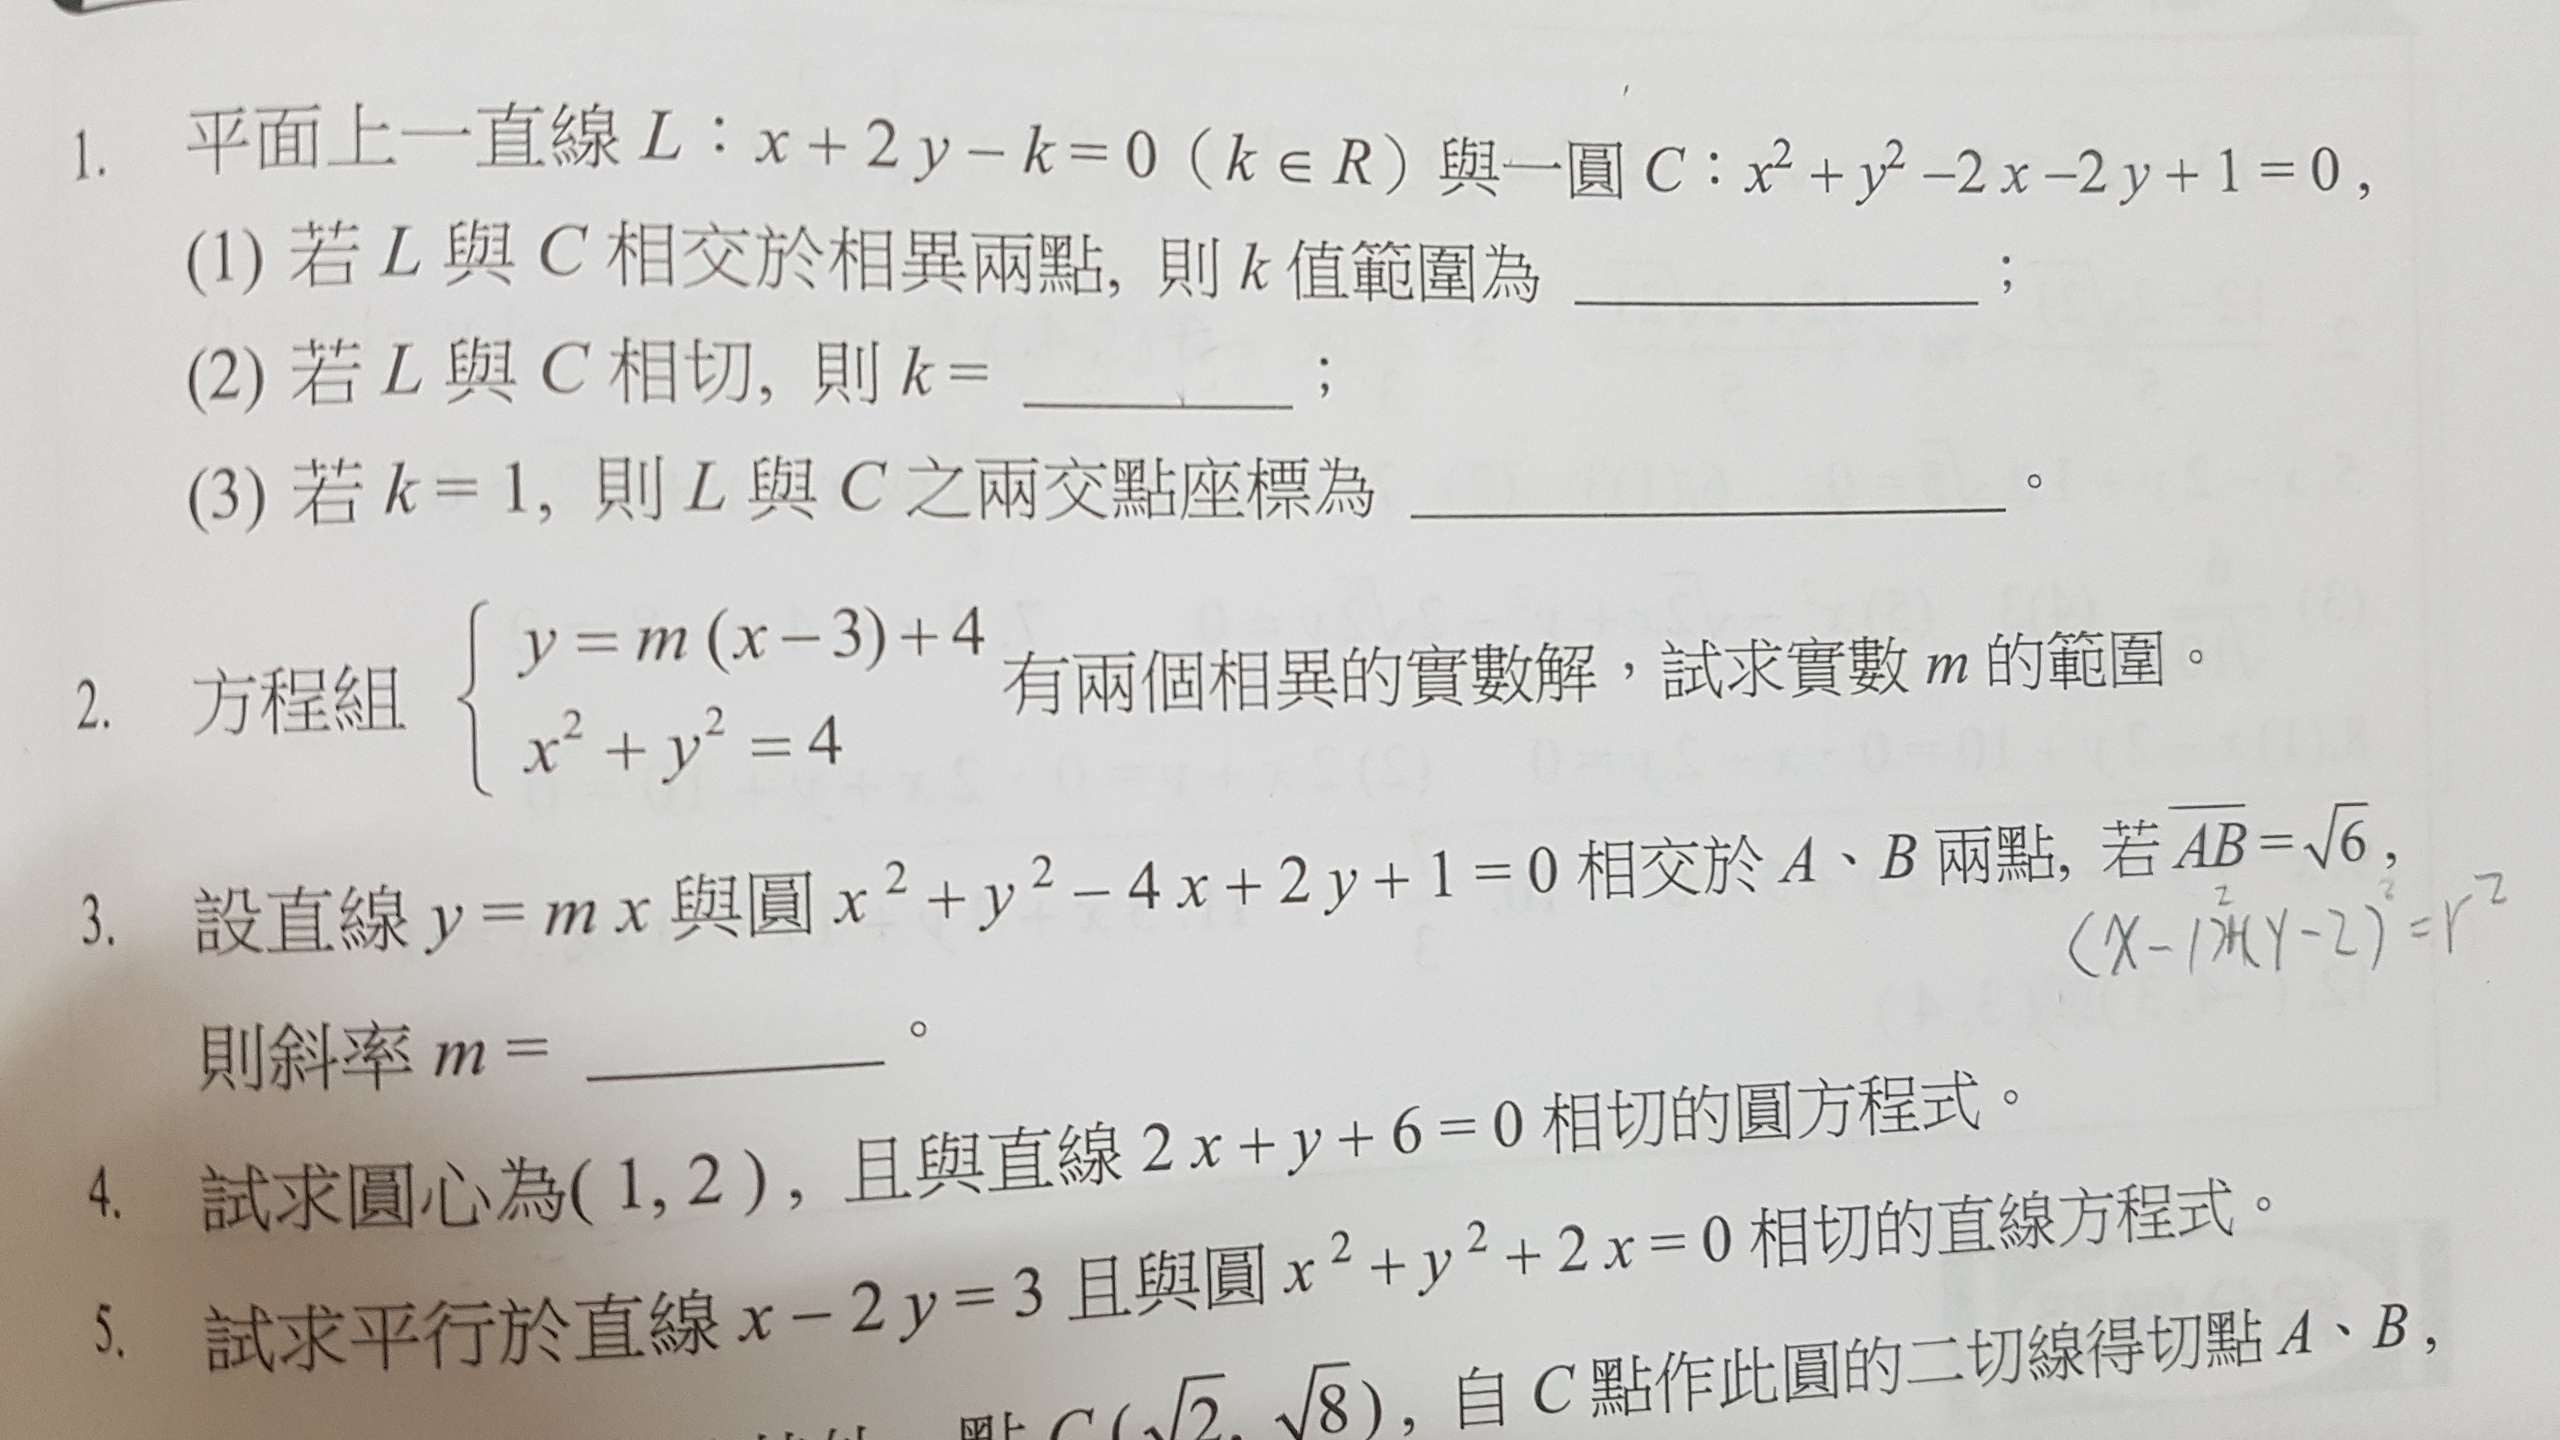 1. 平面上一直線 L：x + 2 y − k = 0（k ∈ R）與一圓 C：x² + y² −2 x −2 y + 1 = 0 ,
(1) 若 L 與 C 相交於相異兩點, 則 k 值範圍為 ＿＿＿＿＿＿ ；
(2) 若 L 與 C 相切, 則 k = ＿＿＿＿ ；
(3) 若 k = 1, 則 L 與 C 之兩交點座標為 ＿＿＿＿＿＿＿＿ 。
2. 方程組 { y = m (x − 3) + 4
x² + y² = 4 有兩個相異的實數解，試求實數 m 的範圍。
3. 設直線 y = m x 與圓 x² + y² − 4 x + 2 y + 1 = 0 相交於 A、B 兩點, 若 A̅B̅ = √6 ,
(x−1)²+(y−2)² = r²
則斜率 m = ＿＿＿＿ 。
4. 試求圓心為( 1, 2 ) , 且與直線 2 x + y + 6 = 0 相切的圓方程式。
5. 試求平行於直線 x − 2 y = 3 且與圓 x² + y² + 2 x = 0 相切的直線方程式。
點 C ( √2, √8 ) , 自 C 點作此圓的二切線得切點 A、B ,